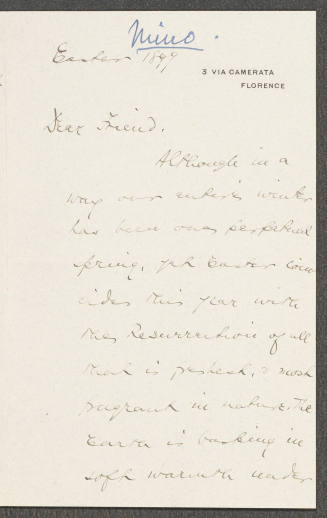 Mino.
Easter 1899
3 VIA CAMERATA
FLORENCE
Dear Friend.
Although in a
way our entire winter
has been one perpetual
spring, yet Easter coin
cides this year with
the Resurrection of all
that is freshest, & most
fragrant in nature. The
Earth is basking in
soft warmth under